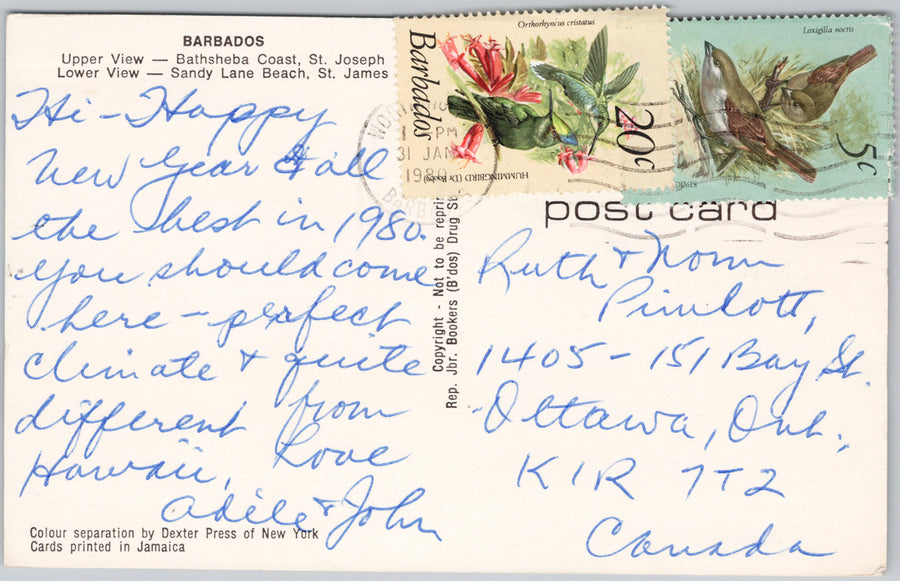 BARBADOS
Upper View — Bathsheba Coast, St. Joseph
Lower View — Sandy Lane Beach, St. James
Hi - Happy
New Year & all
the best in 1980.
You should come
here - perfect
climate & quite
different from
Hawaii, Love
Adile & John
Colour separation by Dexter Press of New York
Cards printed in Jamaica
Copyright - Not to be
Rep. Jbr. Bookers (B'dos) Drug
Orthorhyncus cristatus
Barbados
20c
HUMMINGBIRD (Dr Booby)
Loxigilla noctis
5c
PM
31 JAN
1980
post card
Ruth & Norm
Pimlott,
1405 - 151 Bay St.
Ottawa, Ont.,
K1R 7T2
Canada